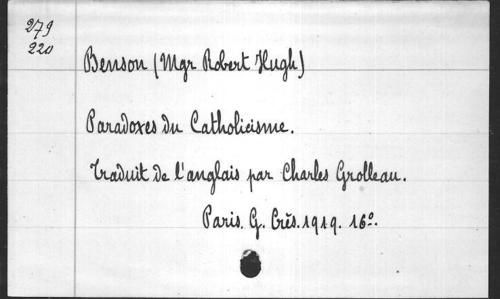 279
220
Benson (Mgr Robert Hugh)
Paradoxes du Catholicisme.
Traduit de l'anglais par Charles Grolleau.
Paris. G. Crès. 1919. 16º.